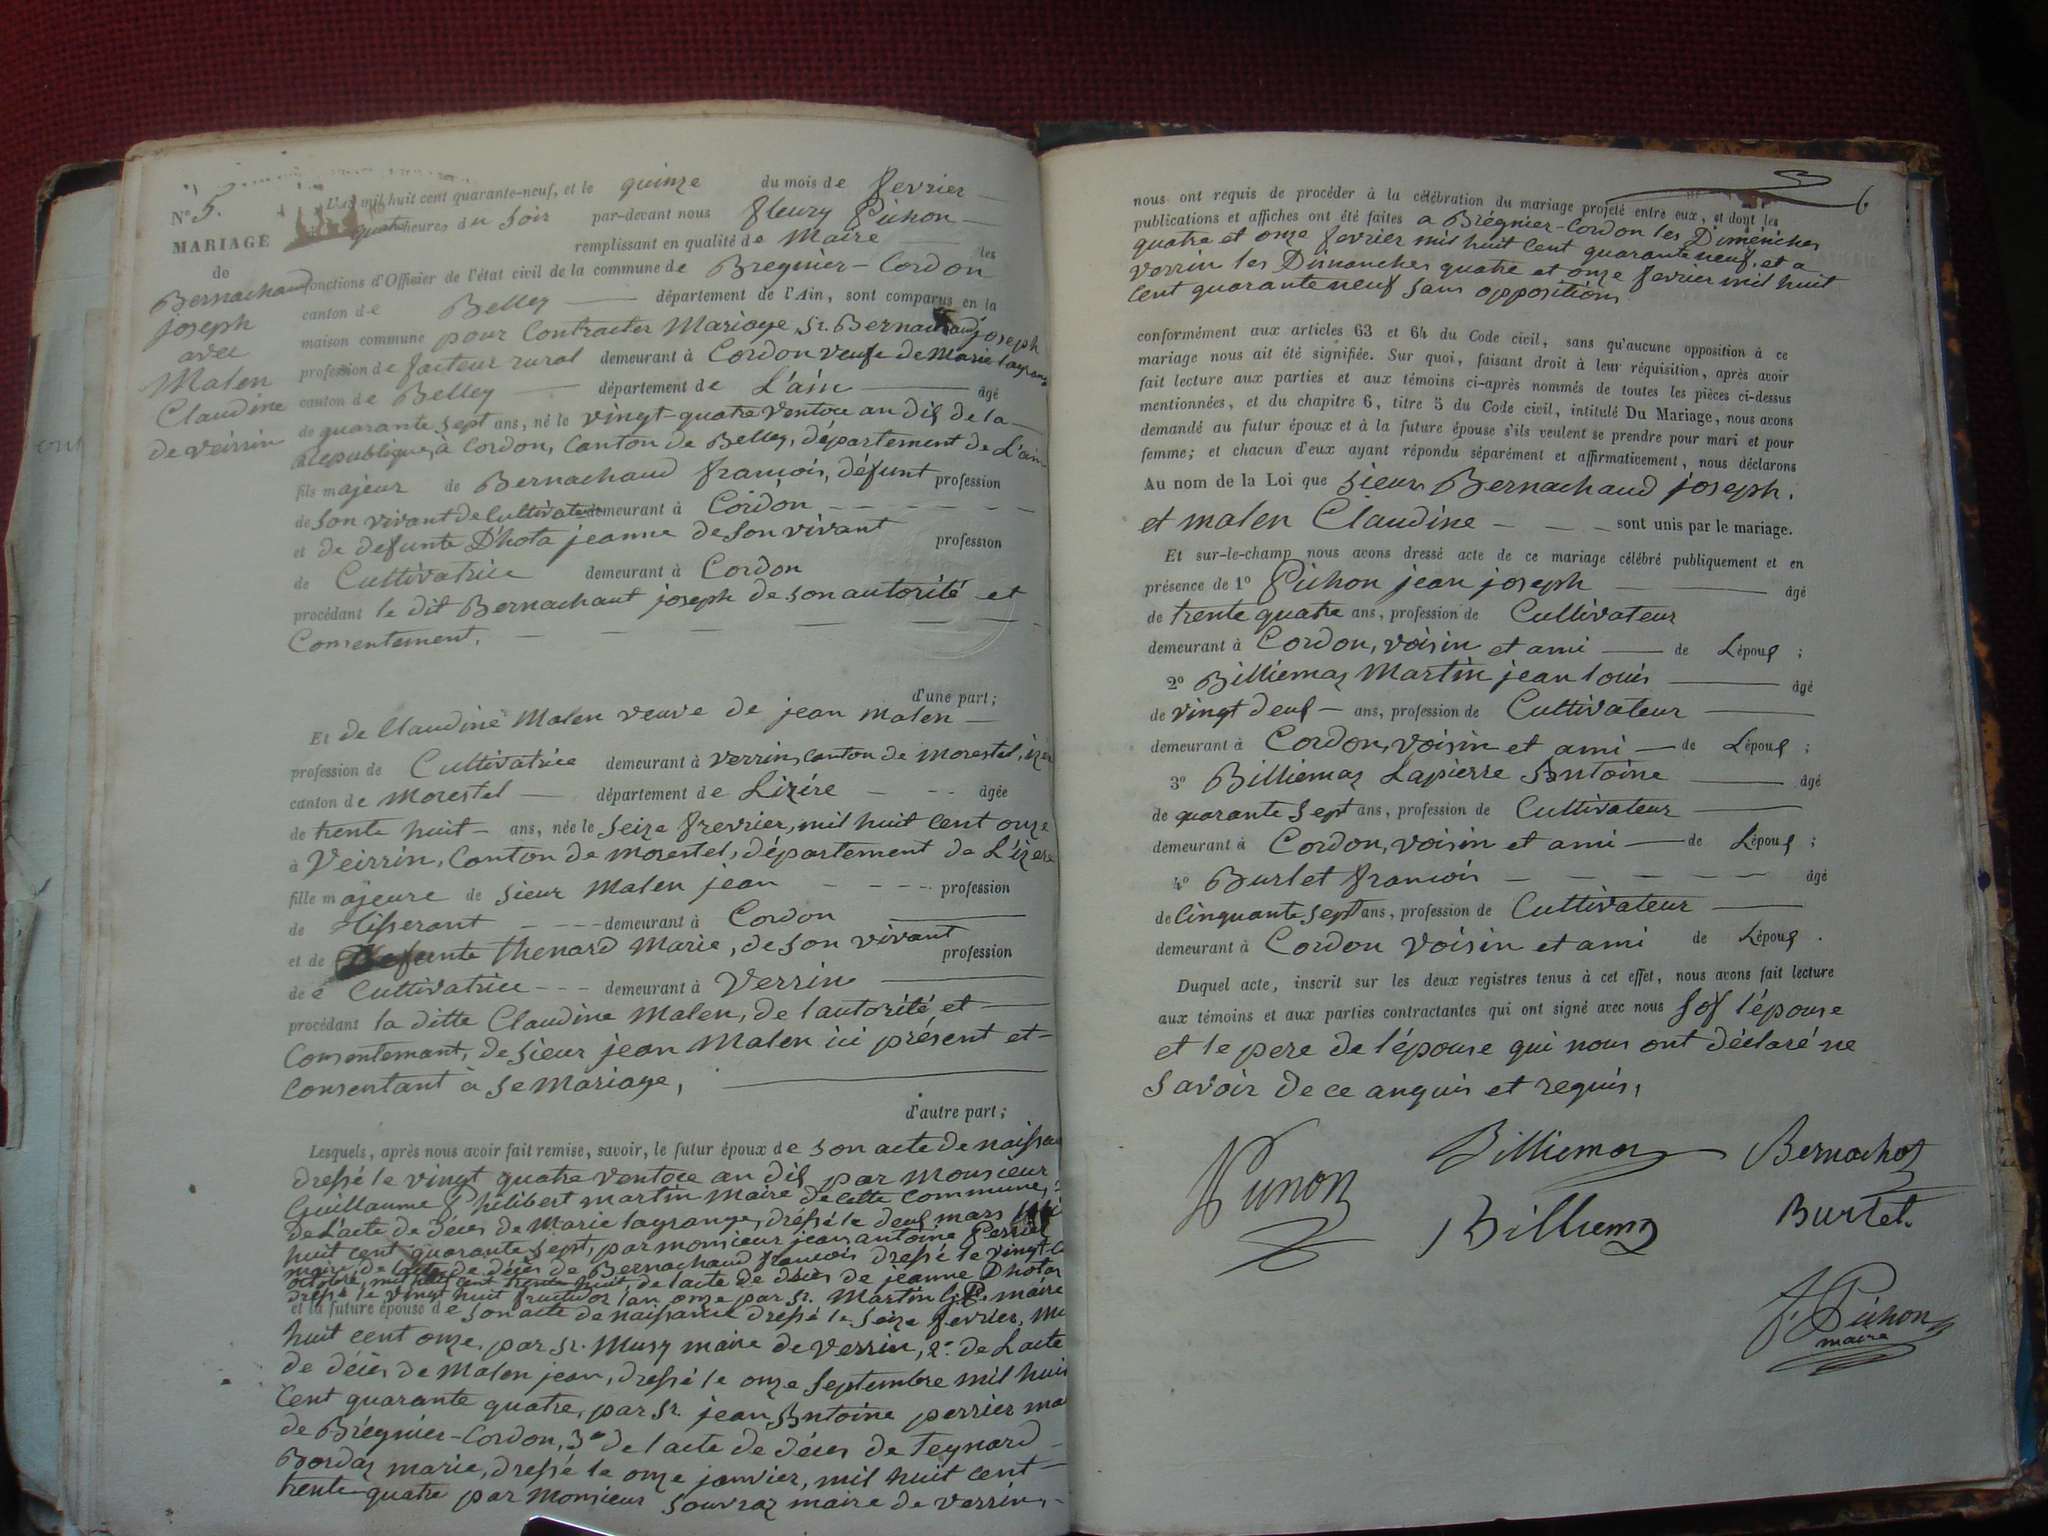 N° 5.
MARIAGE
de
Bernachaud
joseph
avec
Malen
Claudine
de veirrin
L'An mil huit cent quarante-neuf, et le quinze du mois de fevrier
quatre heures du soir par-devant nous fleury Pichon
remplissant en qualité de Maire les
fonctions d'Officier de l'état civil de la commune de Bregnier-Cordon
canton de Belley département de l'Ain, sont comparus en la
maison commune pour Contracter Mariage, Sr. Bernachaud joseph
profession de facteur rural demeurant à Cordon veuf de Marie lagrange
canton de Belley département de L'ain âgé
de quarante sept ans, né le vingt-quatre ventose an dix de la
République, à Cordon, Canton de Belley, département de L'ain
fils majeur de Bernachaud francois, défunt profession
de son vivant de Cultivateur demeurant à Cordon
et de defunte D'hota jeanne de son vivant profession
de Cultivatrice demeurant à Cordon
procédant le dit Bernachaut joseph de son autorité et
Consentement.
d'une part;
Et de Claudine Malen veuve de jean malen
profession de Cultivatrice demeurant à verrin, canton de morestel, izere
canton de morestel département de Lizére âgée
de trente huit ans, née le seize frevrier, mil huit cent onze
à Veirrin, Canton de morestel, département de L'izere
fille majeure de sieur Malen jean profession
de Tisserant demeurant à Cordon
et de Defunte thenard Marie, de son vivant profession
de Cultivatrice demeurant à Verrin
procédant la ditte Claudine Malen, de l'autorité, et
Consentemant, de sieur jean Malen ici présent et
Consentant à se mariage,
d'autre part;
Lesquels, après nous avoir fait remise, savoir, le futur époux de son acte de naissan
dressé le vingt quatre ventose an dix par Monsieur
Guillaume Philibert martin Maire de cette Commune,
de L'acte de déces de Marie lagrange, dréssé le deux mars mil
huit cent quarante sept, par monsieur jean antoine Perrier
maire, de lacte de décès de Bernachaud francois dressé le vingt
octobre, mil huit cent trente huit, de lacte de décès de jeanne Dhota
dressé le vingt huit fructidor l'an onze par Sr. Martin G.P. maire
et la future épouse de son acte de naissance dressé le seize fevrier, mi
huit cent onze, par Sr. Musy maire de verrin, 2° de Lacte
de décès de Malen jean, dressé le onze septembre mil huit
Cent quarante quatre, par Sr. jean Antoine perrier ma
de Brégnier-Cordon, 3° de l'acte de déces de Teynard
Bordaz marie, dressé le onze janvier, mil huit cent
trente quatre par Monsieur Souvraz maire de verrin,
6
nous ont requis de procéder à la célébration du mariage projeté entre eux, et dont les
publications et affiches ont été faites a Brégnier-Cordon les Diménches
quatre et onze fevrier mil huit Cent quarante neuf. et a
verrin les Dimanches quatre et onze fevrier mil huit
Cent quarante neuf sans opposition
conformément aux articles 63 et 64 du Code civil, sans qu'aucune opposition à ce
mariage nous ait été signifiée. Sur quoi, faisant droit à leur réquisition, après avoir
fait lecture aux parties et aux témoins ci-après nommés de toutes les pièces ci-dessus
mentionnées, et du chapitre 6, titre 5 du Code civil, intitulé Du Mariage, nous avons
demandé au futur époux et à la future épouse s'ils veulent se prendre pour mari et pour
femme; et chacun d'eux ayant répondu séparément et affirmativement, nous déclarons
Au nom de la Loi que sieur Bernachaud joseph.
et malen Claudine sont unis par le mariage.
Et sur-le-champ nous avons dressé acte de ce mariage célébré publiquement et en
présence de 1° Pichon jean joseph âgé
de trente quatre ans, profession de Cultivateur
demeurant à Cordon, voisin et ami de L'époux ;
2° Billiemaz Martin jean louis âgé
de vingt deux ans, profession de Cultivateur
demeurant à Cordon, voisin et ami de L'époux ;
3° Billiemaz Lapierre Antoine âgé
de quarante sept ans, profession de Cultivateur
demeurant à Cordon, voisin et ami de L'époux ;
4° Burlet francois âgé
de Cinquante sept ans, profession de Cultivateur
demeurant à Cordon voisin et ami de L'époux .
Duquel acte, inscrit sur les deux registres tenus à cet effet, nous avons fait lecture
aux témoins et aux parties contractantes qui ont signé avec nous sof l'épouse
et le pere de l'épouse qui nous ont déclaré ne
savoir de ce anquis et requis,
Billiemaz Bernachot
Billiemaz Burlet.
F. Pichon
maire